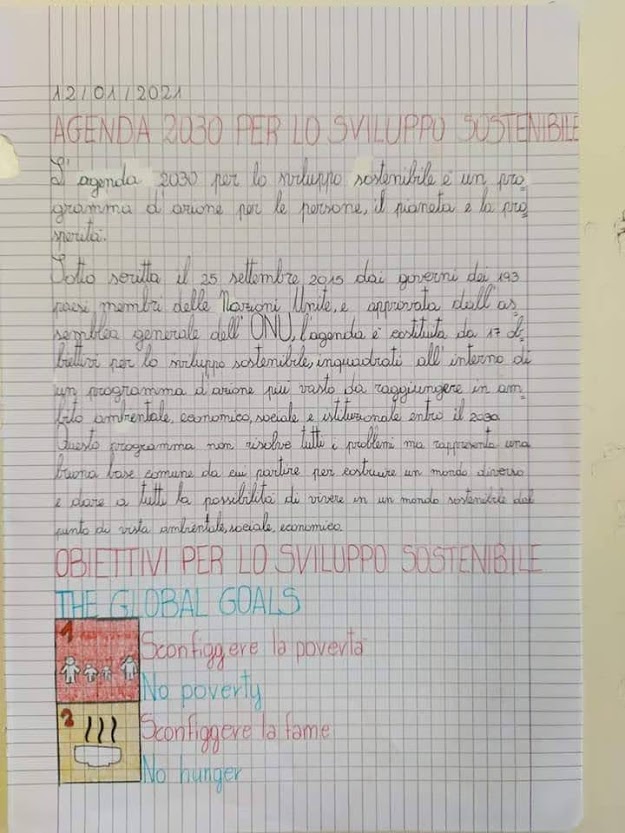 12/01/2021
AGENDA 2030 PER LO SVILUPPO SOSTENIBILE
L'agenda 2030 per lo sviluppo sostenibile è un pro
gramma d'azione per le persone, il pianeta e la pro
sperità.
Sotto scritta il 25 settembre 2015 dai governi dei 193
paesi membri delle Nazioni Unite, e approvata dall'as
semblea generale dell'ONU, l'agenda è costituta da 17 ob
biettivi per lo sviluppo sostenibile, inquadrati all'interno di
un programma d'azione più vasto da raggiungere in am
bito ambientale, economico, sociale e istituzionale entro il 2030.
Questo programma non risolve tutti i problemi ma rappresenta una
buona base comune da cui partire per costruire un mondo diverso
e dare a tutti la possibilità di vivere in un mondo sostenibile dal
punto di vista ambientale, sociale, economico.
OBIETTIVI PER LO SVILUPPO SOSTENIBILE
THE GLOBAL GOALS
1
Sconfiggere la povertà
No poverty
2
Sconfiggere la fame
No hunger